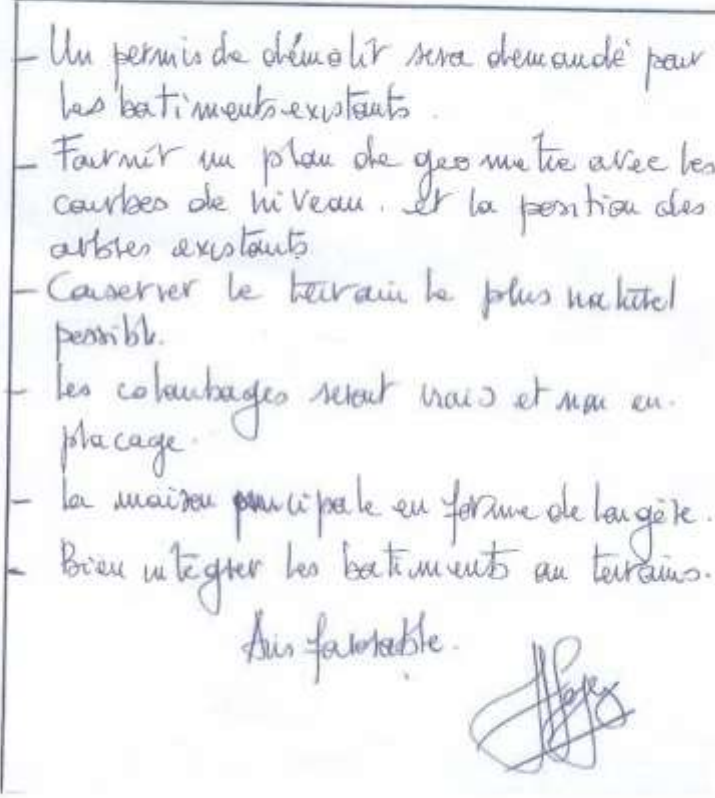 - Un permis de démolir sera demandé pour
les batiments existants.
- Fournir un plan de geometre avec les
courbes de niveau. et la position des
arbres existants
- Conserver le terrain le plus naturel
possible.
- les colombages seront vrais et non en
placage.
- la maison principale en forme de longère.
- Bien intégrer les batiments au terrains.
Avis favorable.